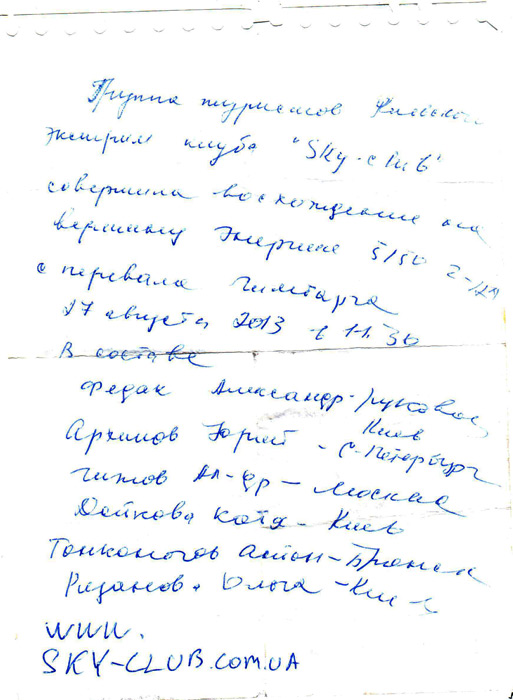 Группа туристов Киевского
экстрим клуба "Sky-club"
совершила восхождение на
вершину 5150 2-
с перевала
27 августа 2013 в 11.30
В составе
Федак Александр -
Киев
Архипов Юрий - С-Петербург
Чижов Ал-др - Москва
Дейкова Катя - Киев
Тонконогов Антон - Брянск
Ольга - Киев
www.
SKY-CLUB.COM.UA